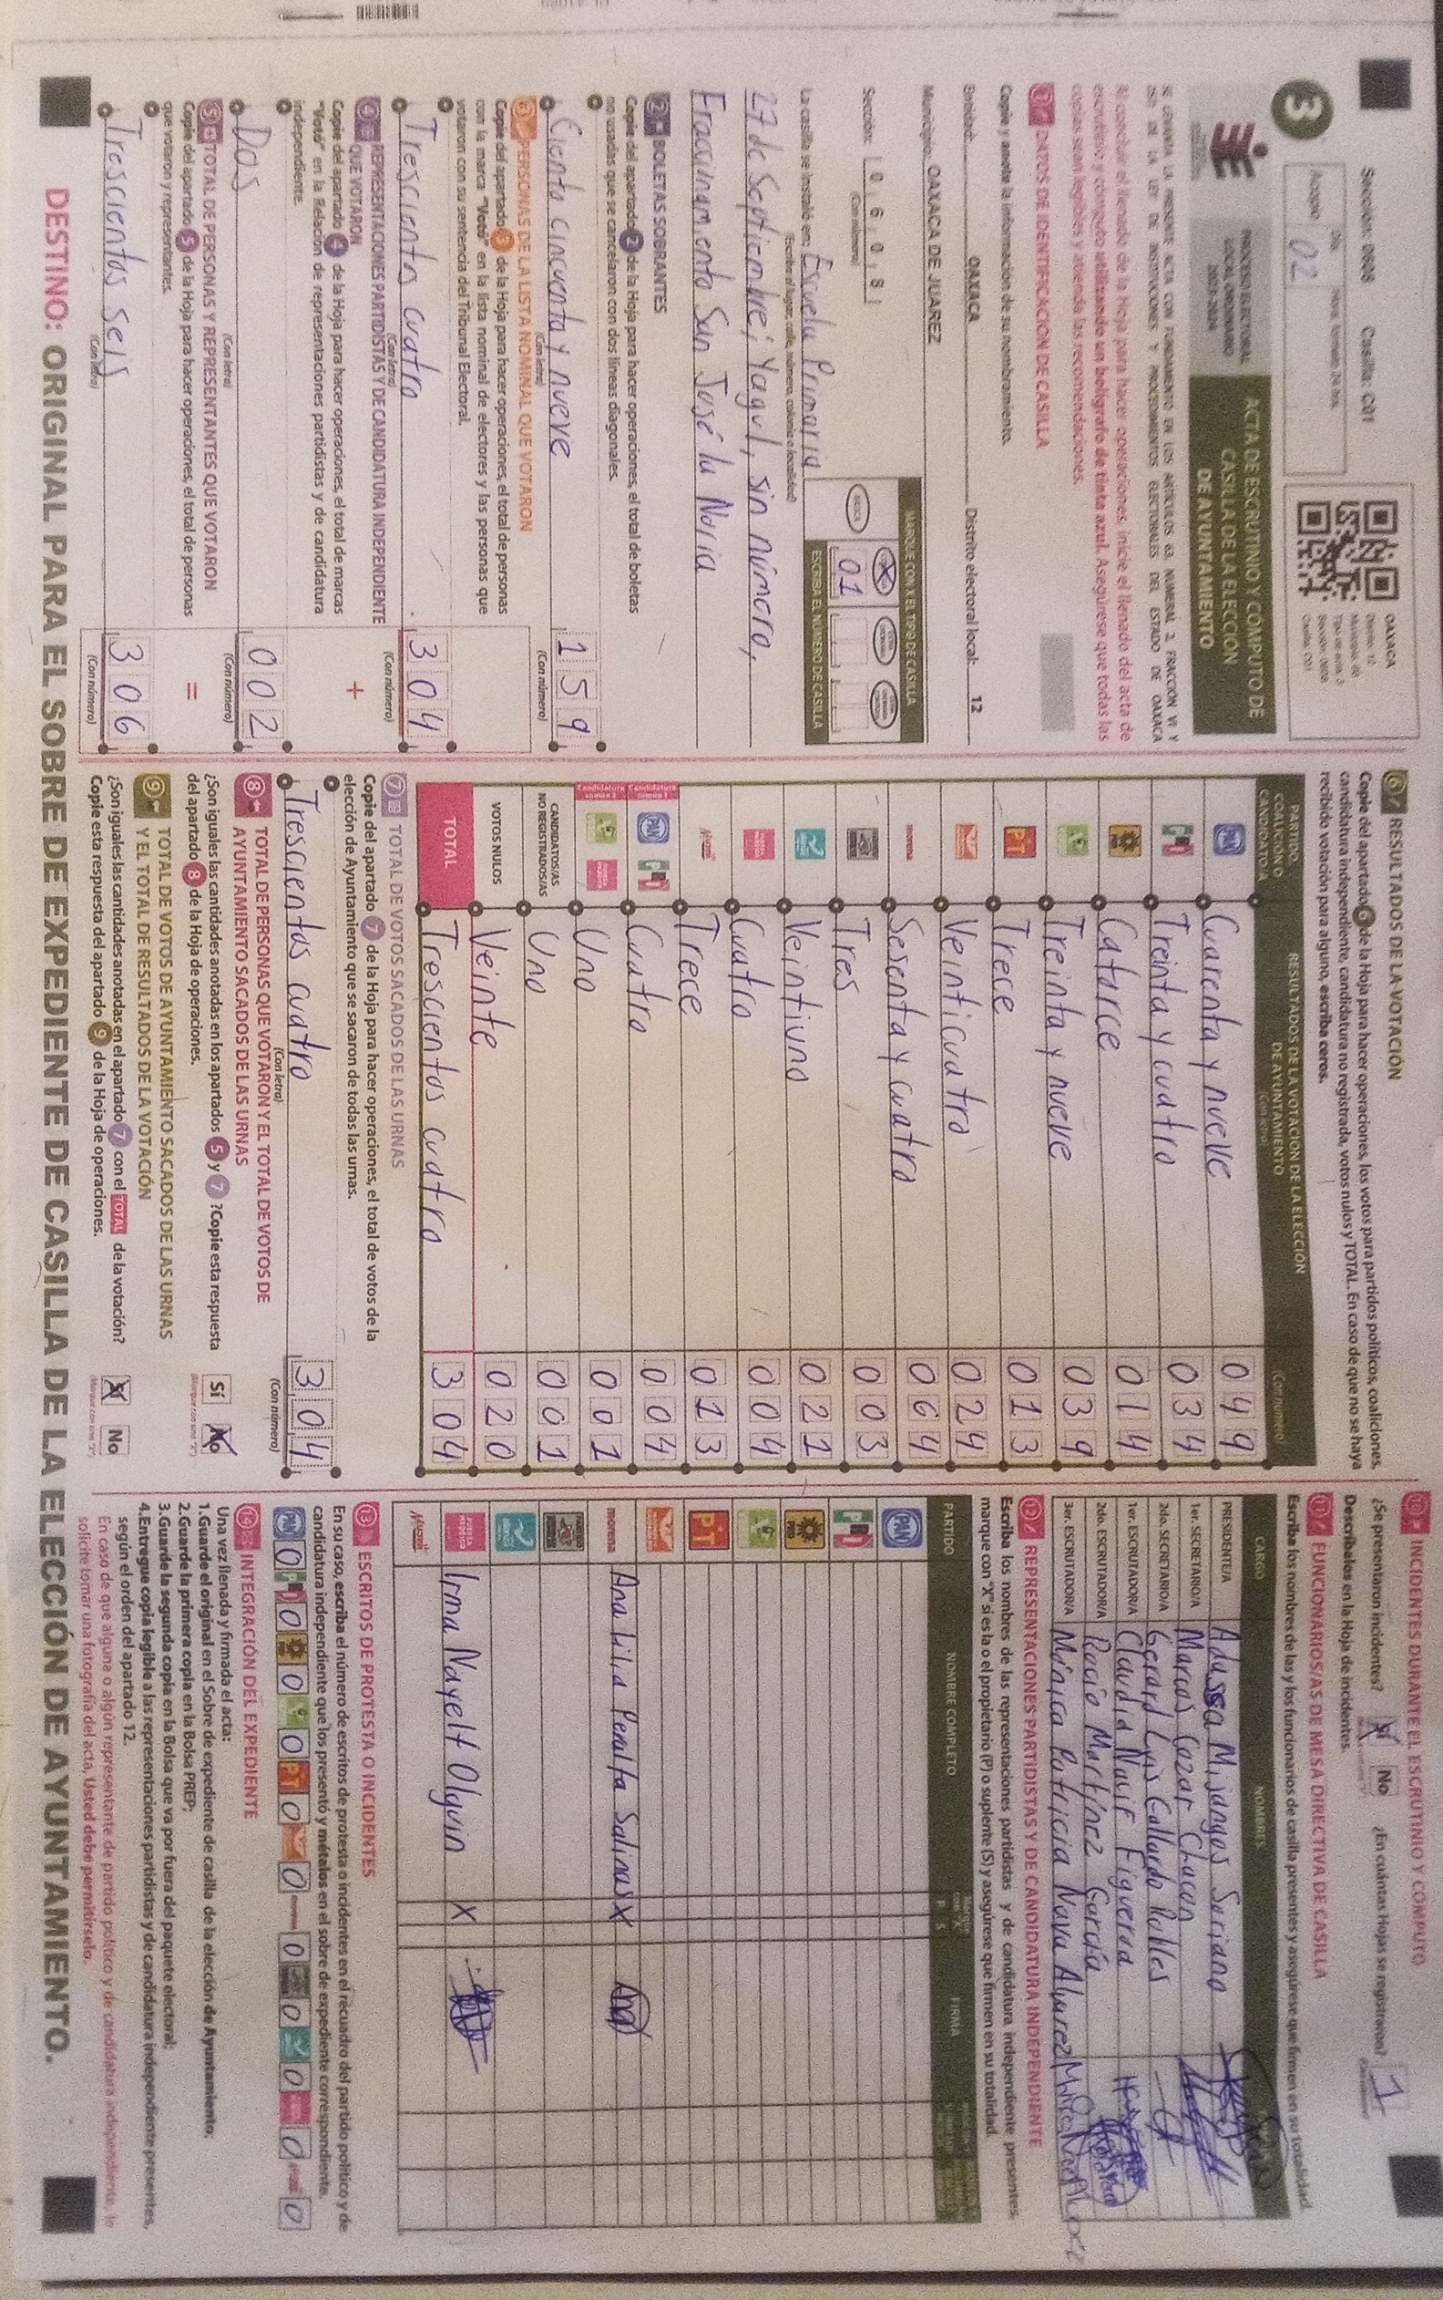 Sección: 0608 Casilla: C01
3
Acopio
02
PROCESO ELECTORAL
LOCAL ORDINARIO
2023-2024
ACTA DE ESCRUTINIO Y CÓMPUTO DE
CASILLA DE LA ELECCIÓN
DE AYUNTAMIENTO
OAXACA
SE LEVANTA LA PRESENTE ACTA CON FUNDAMENTO EN LOS ARTÍCULOS 63, NUMERAL 2, FRACCIÓN VI Y
DE LA LEY DE INSTITUCIONES Y PROCEDIMIENTOS ELECTORALES DEL ESTADO DE OAXACA
Al concluir el llenado de la Hoja para hacer operaciones, inicie el llenado del acta de
escrutinio y cómputo utilizando un bolígrafo de tinta azul. Asegúrese que todas las
copias sean legibles y atienda las recomendaciones.
1 DATOS DE IDENTIFICACIÓN DE CASILLA
Copie y anote la información de su nombramiento.
Entidad: OAXACA Distrito electoral local: 12
Municipio: OAXACA DE JUAREZ
Sección: 0608
(Con número)
MARQUE CON X EL TIPO DE CASILLA
BÁSICA
01
ESCRIBA EL NÚMERO DE CASILLA
La casilla se instaló en: Escuela Primaria
(Escriba el lugar, calle, número, colonia o localidad)
27 de Septiembre; Yagul, sin número,
Fraccionamiento San José la Noria
2 BOLETAS SOBRANTES
Copie del apartado 2 de la Hoja para hacer operaciones, el total de boletas
no usadas que se cancelaron con dos líneas diagonales.
Ciento cincuenta y nueve 159
(Con letra) (Con número)
3 PERSONAS DE LA LISTA NOMINAL QUE VOTARON
Copie del apartado 3 de la Hoja para hacer operaciones, el total de personas
con la marca "Votó" en la lista nominal de electores y las personas que
votaron con su sentencia del Tribunal Electoral.
Trescientos cuatro 304
(Con letra) (Con número)
4 REPRESENTACIONES PARTIDISTAS Y DE CANDIDATURA INDEPENDIENTE
QUE VOTARON
+
Copie del apartado 4 de la Hoja para hacer operaciones, el total de marcas
"Votó" en la Relación de representaciones partidistas y de candidatura
independiente.
Dos 002
(Con letra) (Con número)
5 TOTAL DE PERSONAS Y REPRESENTANTES QUE VOTARON
=
Copie del apartado 5 de la Hoja para hacer operaciones, el total de personas
que votaron y representantes.
Trescientos seis 306
(Con letra) (Con número)
6 RESULTADOS DE LA VOTACIÓN
Copie del apartado 6 de la Hoja para hacer operaciones, los votos para partidos políticos, coaliciones,
candidatura independiente, candidatura no registrada, votos nulos y TOTAL. En caso de que no se haya
recibido votación para alguno, escriba ceros.
PARTIDO, COALICIÓN O CANDIDATO/A
RESULTADOS DE LA VOTACIÓN DE LA ELECCIÓN
DE AYUNTAMIENTO
(Con letra) (Con número)
PAN Cuarenta y nueve 049
PRI Treinta y cuatro 034
PRD Catorce 014
Treinta y nueve 039
PT Trece 013
Veinticuatro 024
morena Sesenta y cuatro 064
Tres 003
Veintiuno 021
Cuatro 004
Trece 013
PAN PRI Cuatro 004
Uno 001
CANDIDATOS/AS NO REGISTRADOS/AS Uno 001
VOTOS NULOS Veinte 020
TOTAL Trescientos cuatro 304
7 TOTAL DE VOTOS SACADOS DE LAS URNAS
Copie del apartado 7 de la Hoja para hacer operaciones, el total de votos de la
elección de Ayuntamiento que se sacaron de todas las urnas.
Trescientos cuatro 304
(Con letra) (Con número)
8 TOTAL DE PERSONAS QUE VOTARON Y EL TOTAL DE VOTOS DE
AYUNTAMIENTO SACADOS DE LAS URNAS
¿Son iguales las cantidades anotadas en los apartados 5 y 7 ?Copie esta respuesta
del apartado 8 de la Hoja de operaciones.
Sí No
9 TOTAL DE VOTOS DE AYUNTAMIENTO SACADOS DE LAS URNAS
Y EL TOTAL DE RESULTADOS DE LA VOTACIÓN
¿Son iguales las cantidades anotadas en el apartado 7 con el TOTAL de la votación?
Copie esta respuesta del apartado 9 de la Hoja de operaciones.
Sí No
10 INCIDENTES DURANTE EL ESCRUTINIO Y CÓMPUTO
¿Se presentaron incidentes? Sí No ¿En cuántas Hojas se registraron? 1
Descríbalos en la Hoja de incidentes.
11 FUNCIONARIOS/AS DE MESA DIRECTIVA DE CASILLA
Escriba los nombres de las y los funcionarios de casilla presentes y asegúrese que firmen en su totalidad.
CARGO NOMBRES
PRESIDENTE/A Adassa Mijangos Soriano
1er. SECRETARIO/A Marcos Cazar Chacon
2do. SECRETARIO/A Gerard Luis Gallardo Robles
1er. ESCRUTADOR/A Claudia Nasir Figueroa
2do. ESCRUTADOR/A Rocío Martínez García
3er. ESCRUTADOR/A Mónica Patricia Nava Alvarez
12 REPRESENTACIONES PARTIDISTAS Y DE CANDIDATURA INDEPENDIENTE
Escriba los nombres de las representaciones partidistas y de candidatura independiente presentes,
marque con "X" si es la o el propietario (P) o suplente (S) y asegúrese que firmen en su totalidad.
PARTIDO NOMBRE COMPLETO P S FIRMA
PAN
PRI
PRD
PT
morena Ana Lilia Peralta Salinas X Ana
Irma Nayelt Olguin X
13 ESCRITOS DE PROTESTA O INCIDENTES
En su caso, escriba el número de escritos de protesta o incidentes en el recuadro del partido político y de
candidatura independiente que los presentó y métalos en el sobre de expediente correspondiente.
PAN 0 PRI 0 PRD 0 0 PT 0 0 morena 0 0 0 0 0
14 INTEGRACIÓN DEL EXPEDIENTE
Una vez llenada y firmada el acta:
1.Guarde el original en el Sobre de expediente de casilla de la elección de Ayuntamiento;
2.Guarde la primera copia en la Bolsa PREP;
3.Guarde la segunda copia en la Bolsa que va por fuera del paquete electoral;
4.Entregue copia legible a las representaciones partidistas y de candidatura independiente presentes,
según el orden del apartado 12.
En caso de que alguna o algún representante de partido político y de candidatura independiente, le
solicite tomar una fotografía del acta, Usted debe permitírselo.
DESTINO: ORIGINAL PARA EL SOBRE DE EXPEDIENTE DE CASILLA DE LA ELECCIÓN DE AYUNTAMIENTO.